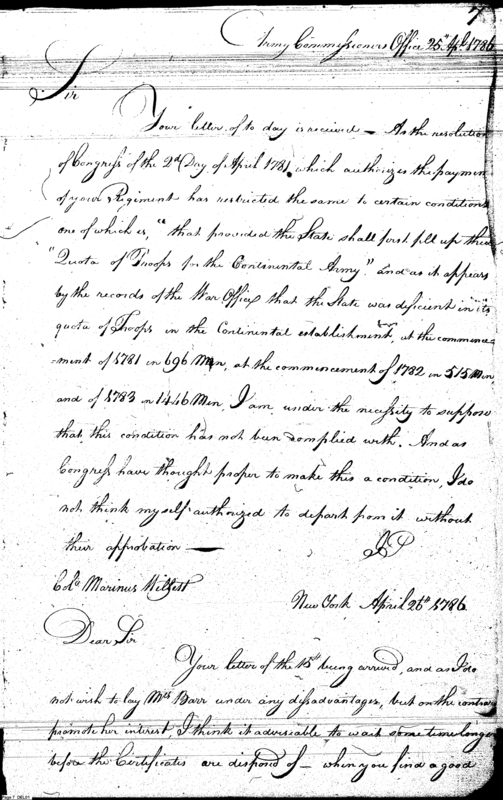 7
Army Commissioners Office 25th Apl 1786
Sir
Your letter of to day is received — As the resolution
of Congress of the 2d Day of April 1781, which authorizes the paymen
of your Regiment has restricted the same to certain condition
one of which is, "that provided the State shall first fill up their
"Quota of Troops for the Continental Army." and as it appears
by the records of the War Office that the State was deficient in its
quota of Troops in the Continental establishment, at the commence-
-ment of 1781 in 696 Men, at the commencement of 1782 in 515 Men
and of 1783 in 1446 Men, I am under the necessity to suppose
that this condition has not been complied with. And as
Congress have thought proper to make this a condition, I do
not think myself authorized to depart from it without
their approbation —
JP
Colo Marinus Willett
New York April 26th 1786
Dear Sir
Your letter of the 15th being arrived, and as I do
not wish to lay Mrs Barr under any dissadvantages, but on the contrary
promote her interest, I think it adviseable to wait some time longer
before the Certificates are disposed of — when you find a good